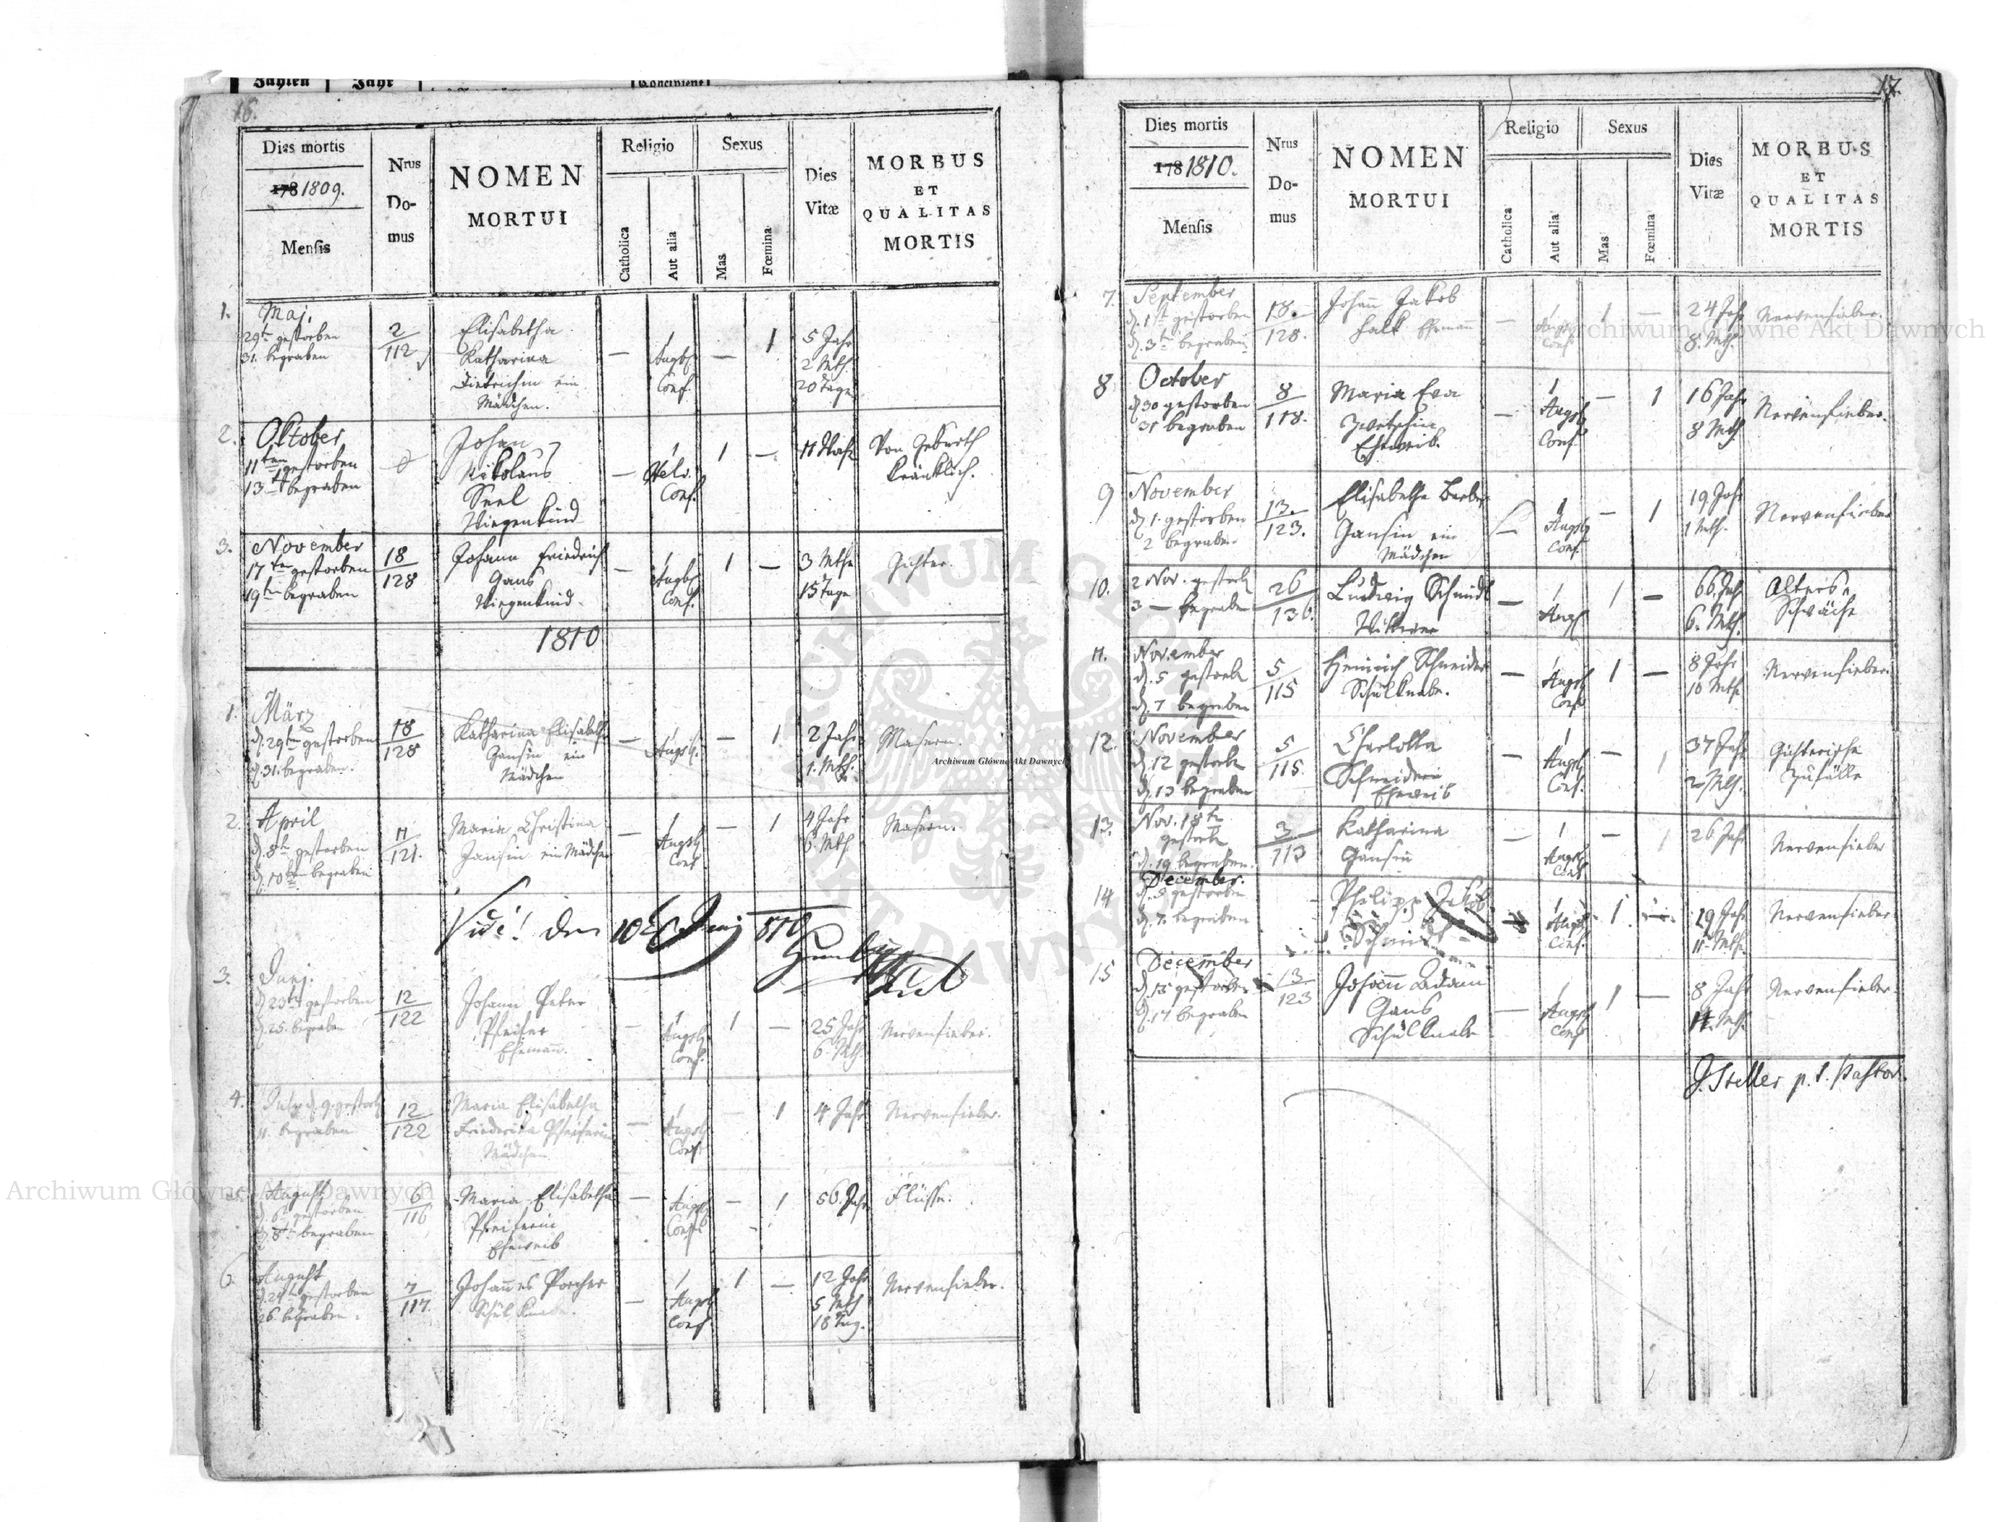 Zahlen Jahr
16.
Dies mortis
178 1809.
Mensis
Nrus Domus
NOMEN
MORTUI
Religio
Catholica
Aut alia
Sexus
Mas
Fœmina
Dies
Vitæ
MORBUS
ET
QUALITAS
MORTIS
1. Maj.
29t gestorben
31. begraben
2/112
Elisabetha
Katharina
Dietrichin ein
Mädchen.
— 1 Augsb. Conf. — 1
5 Jahr
2 Mth.
20 Tage
2. Oktober
11ten gestorben
13t begraben
Johan
Nikolaus
Seel
Wiegenkind
— 1 Helv. Conf. 1 —
Von Geburth
kränklich.
3. November
17ten gestorben
19ten begraben
18/128
Johann Friedrich
Gans
Wiegenkind.
— 1 Augsb. Conf. 1 —
3 Mthe
15 Tage
Gichter.
1810
1. März
d. 29ten gestorben
d. 31. begraben.
18/128
Katharina Elisabetha
Gansin ein
Mädchen
— 1 Augsb. — 1
2 Jahr
1. Mth.
Masern.
2. April
d. 8t gestorben
d. 10ten begraben
11/121.
Maria Christina
Jansin ein Mädchen
— 1 Augsb. Conf — 1
4 Jahr
6 Mth
Masern.
Vidi! den 10t Juny 810
3. Junj.
gestorben
d. 25. begraben
12/122
Johann Peter
Pfeifer
Ehemann.
— 1 Augsb. Conf. 1 —
25 Jahr
6 Mth.
Nervenfieber.
4. July d. 9. gestorb
11. begraben
12/122
Maria Elisabetha
Friederika Pfeiferin
Mädchen
— 1 Augsb. Conf. — 1
4 Jahr
Nervenfieber.
5. August
d. 6t gestorben
d. 8t begraben
6/116
Maria Elisabetha
Pfeiferin
Eheweib
— 1 Augsb. Conf. — 1
56 Jahr
Flüsse.
6. August
gestorben
26. begraben.
7/117.
Johannes Porcher
Schulknabe.
— 1 Augsb. Conf. 1 —
12 Jahr
5 Mth
18 Tag.
Nervenfieber.
17.
Dies mortis
178 1810.
Mensis
Nrus Domus
NOMEN
MORTUI
Religio
Catholica
Aut alia
Sexus
Mas
Fœmina
Dies
Vitæ
MORBUS
ET
QUALITAS
MORTIS
7. September
d. 1t gestorben
d. 3t begraben
18./128.
Johann Jakob
Falk Ehemann
— 1 Augsb. Conf. 1 —
24 Jahr
8. Mth.
Nervenfieber.
8 October
d. 30 gestorben
31 begraben
8/118.
Maria Eva
Eheweib.
— 1 Augsb. Conf. — 1
16 Jahr
8 Mth
Nervenfieber.
9 November
d. 1. gestorben
2 begraben
13./123.
Elisabetha Barbar
Gansin ein
Mädchen
1 Augsb. Conf. — 1
19 Jahr
1 Mth.
Nervenfieber
10. 2 Nov. gestorb
3 — begraben
26/136.
Ludwig Schmidt
Wittwer
— 1 Augs. 1 —
66. Jahr
6. Mth.
Alters
Schwäche
11. November
d. 5 gestorben
d. 7 begraben
5/115
Heinrich Schneider
Schulknabe.
— 1 Augsb. Conf. 1 —
8 Jahr
10 Mth
Nervenfieber.
12. November
d. 12 gestorben
d. 13 begraben
5/115.
Charlotta
Schneiderin
Eheweib
— 1 Augsb. Conf. — 1
37 Jahr
2 Mth.
Gichterische
Zufälle
13. Nov. 18t
gestorben
d. 19 begraben.
3/113
Katharina
Gansin
— 1 Augsb. Conf. — 1
26 Jahr
Nervenfieber
14 December.
gestorben
d. 7. begraben
Philipp Jakob
Schmidt
1 Augsb. Conf. 1
19 Jahr
11 Mth.
Nervenfieber.
15 December
d. 15 gestorben
d. 17 begraben
13/123
Johann Adam
Gans
Schulknabe
— 1 Augsb. Conf. 1 —
8 Jahr
11. Mth.
Nervenfieber.
J. Steller p. t. Pastor.
Archiwum Główne Akt Dawnych
Archiwum Główne Akt Dawnych
Archiwum Główne Akt Dawnych
ARCHIWUM GŁÓWNE AKT DAWNYCH